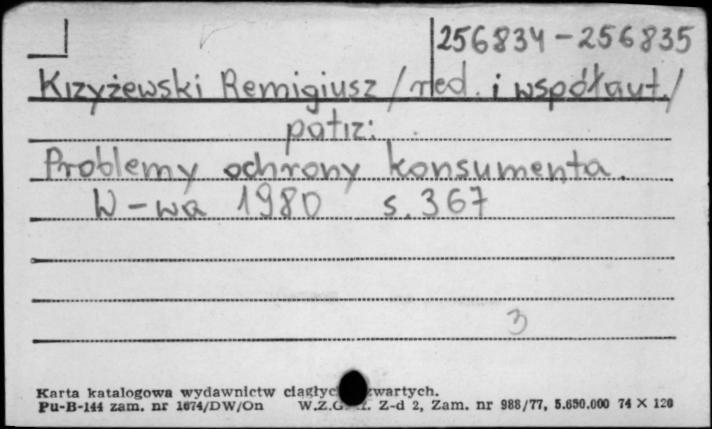 256834-256835
Krzyżewski Remigiusz /red. i współaut./
patrz:
Problemy ochrony konsumenta.
W-wa 1980 s. 367
3
Karta katalogowa wydawnictw
Pu-B-144 zam. nr 1674/DW/On Z-d 2, Zam. nr 988/77, 5.650.000 74 X 120